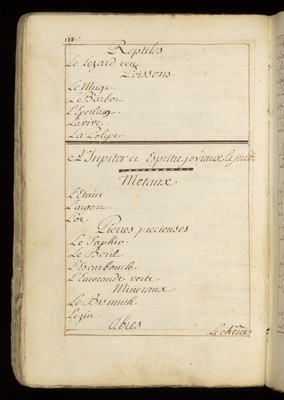 Reptiles
Le Lezard vert
Poissons
Le Muge
Le Barbor
L'Eperlan
La vive
La Polipe
A Jupiter et Esprits joviaux le jeudi
Metaux
L'Etain
L'argent
L'or
Pierres precieuses
Le Saphir
Le Beril
L'Escarboucle
L'Emeraude verte
Mineraux
Le Bismuth
Le zin
Abres
Le chêne